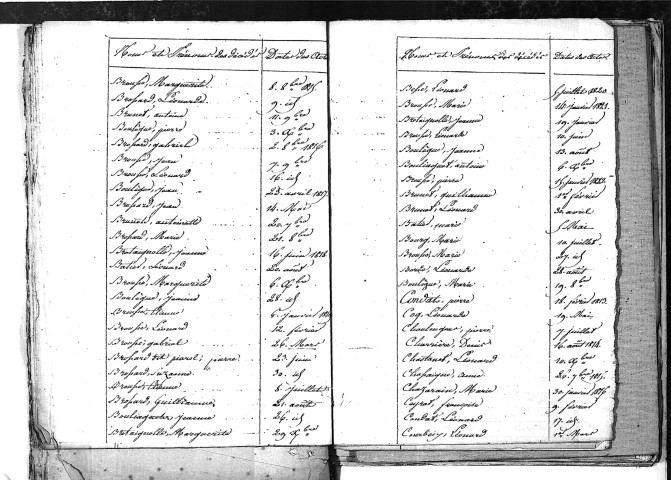 Noms et Prénoms des décédés Dates des Actes
Brousse, Marguerite. 8. 8bre 1815.
Brossard, Léonarde 9. id
Brunet, antoine 11. 9bre
Boutique, pierre 3. Xbre
Brossard, gabriel 2. 8bre 1816
Brousse, Jean 7. 9bre
Brousse, Léonard 16. id
Boutique, Jean 23. avril 1817.
Brossard, Jean 14. Mai
Brunet, antoinette 20. 7bre
Brossard, Marie 21. 8bre
Bretaignolle, Jeanne 16. juin 1818
Batier, Léonard 20. août
Brousse, Marguerite 6. Xbre
Boutique, Jeanne 28. id
Brousse, Anne 6. janvier 1819
Brousse, Léonard 12. février
Brousse, gabriel 26. Mars
Brossard dit pierol, pierre 23. juin
Brossard, Suzanne 30. id
Brousse, Etienne 8. juillet
Brossard, Guilhaume 21. août
Jeanne 26. id
Bretaignolle, Marguerite 29. Xbre
Noms et Prénoms des décédés Dates des Actes
Léonard 5 juillet 1820
Brousse, Marie 14. janvier 1821.
Bretaignolle, Jeanne 19. janvier
Brousse, Léonarde 10. juin
Boutique, Jeanne 13. août
antoine 6. Xbre
Brousse, pierre 15. janvier 1822
Brunet, guilhaume 1er février
Brunet, Léonard 30. avril
Batier, marie 5 Mai
Bourg, Marie 10. juillet
Brousse, Marie 27. id
Léonarde 28. août
Boutique, Marie 19. 8bre
Condat, pierre 18. février 1813.
Coq, Léonarde 19. Mai
pierre 7. juillet
Charrière, Denis 16. août 1814.
Chastanet, Léonard 10. Xbre
Chassaigne, anne 26. 7bre 1815.
Chazarain, Marie 30. janvier 1816
Ceyrat, françoise 9. février
Condat, Léonard 17. id
Courbory, Léonard 1er Mars